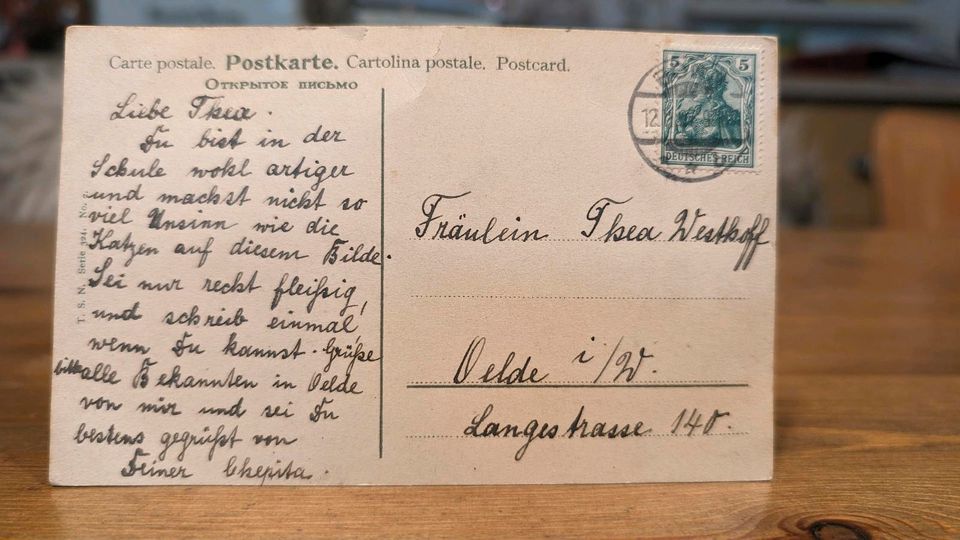 Carte postale. Postkarte. Cartolina postale. Postcard.
Открытое письмо
Liebe Thea.
Du bist in der
Schule wohl artiger
und machst nicht so
viel Unsinn wie die
Katzen auf diesem Bilde.
Sei nur recht fleißig,
und schreib einmal,
wenn Du kannst. Grüße
bitte alle Bekannten in Oelde
von mir und sei Du
bestens gegrüßt von
Deiner Chepita.
T. S. N. Serie 924. No.
5 5
DEUTSCHES REICH
12.
Fräulein Thea Westhoff
Oelde i/W.
Langestrasse 140.